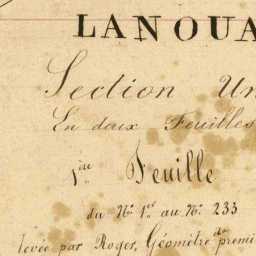 LANOUA
Section Un
En deux Feuilles
1ère Feuille
du N° 1er au N°. 233
levée par Roger, Géomètre de premi